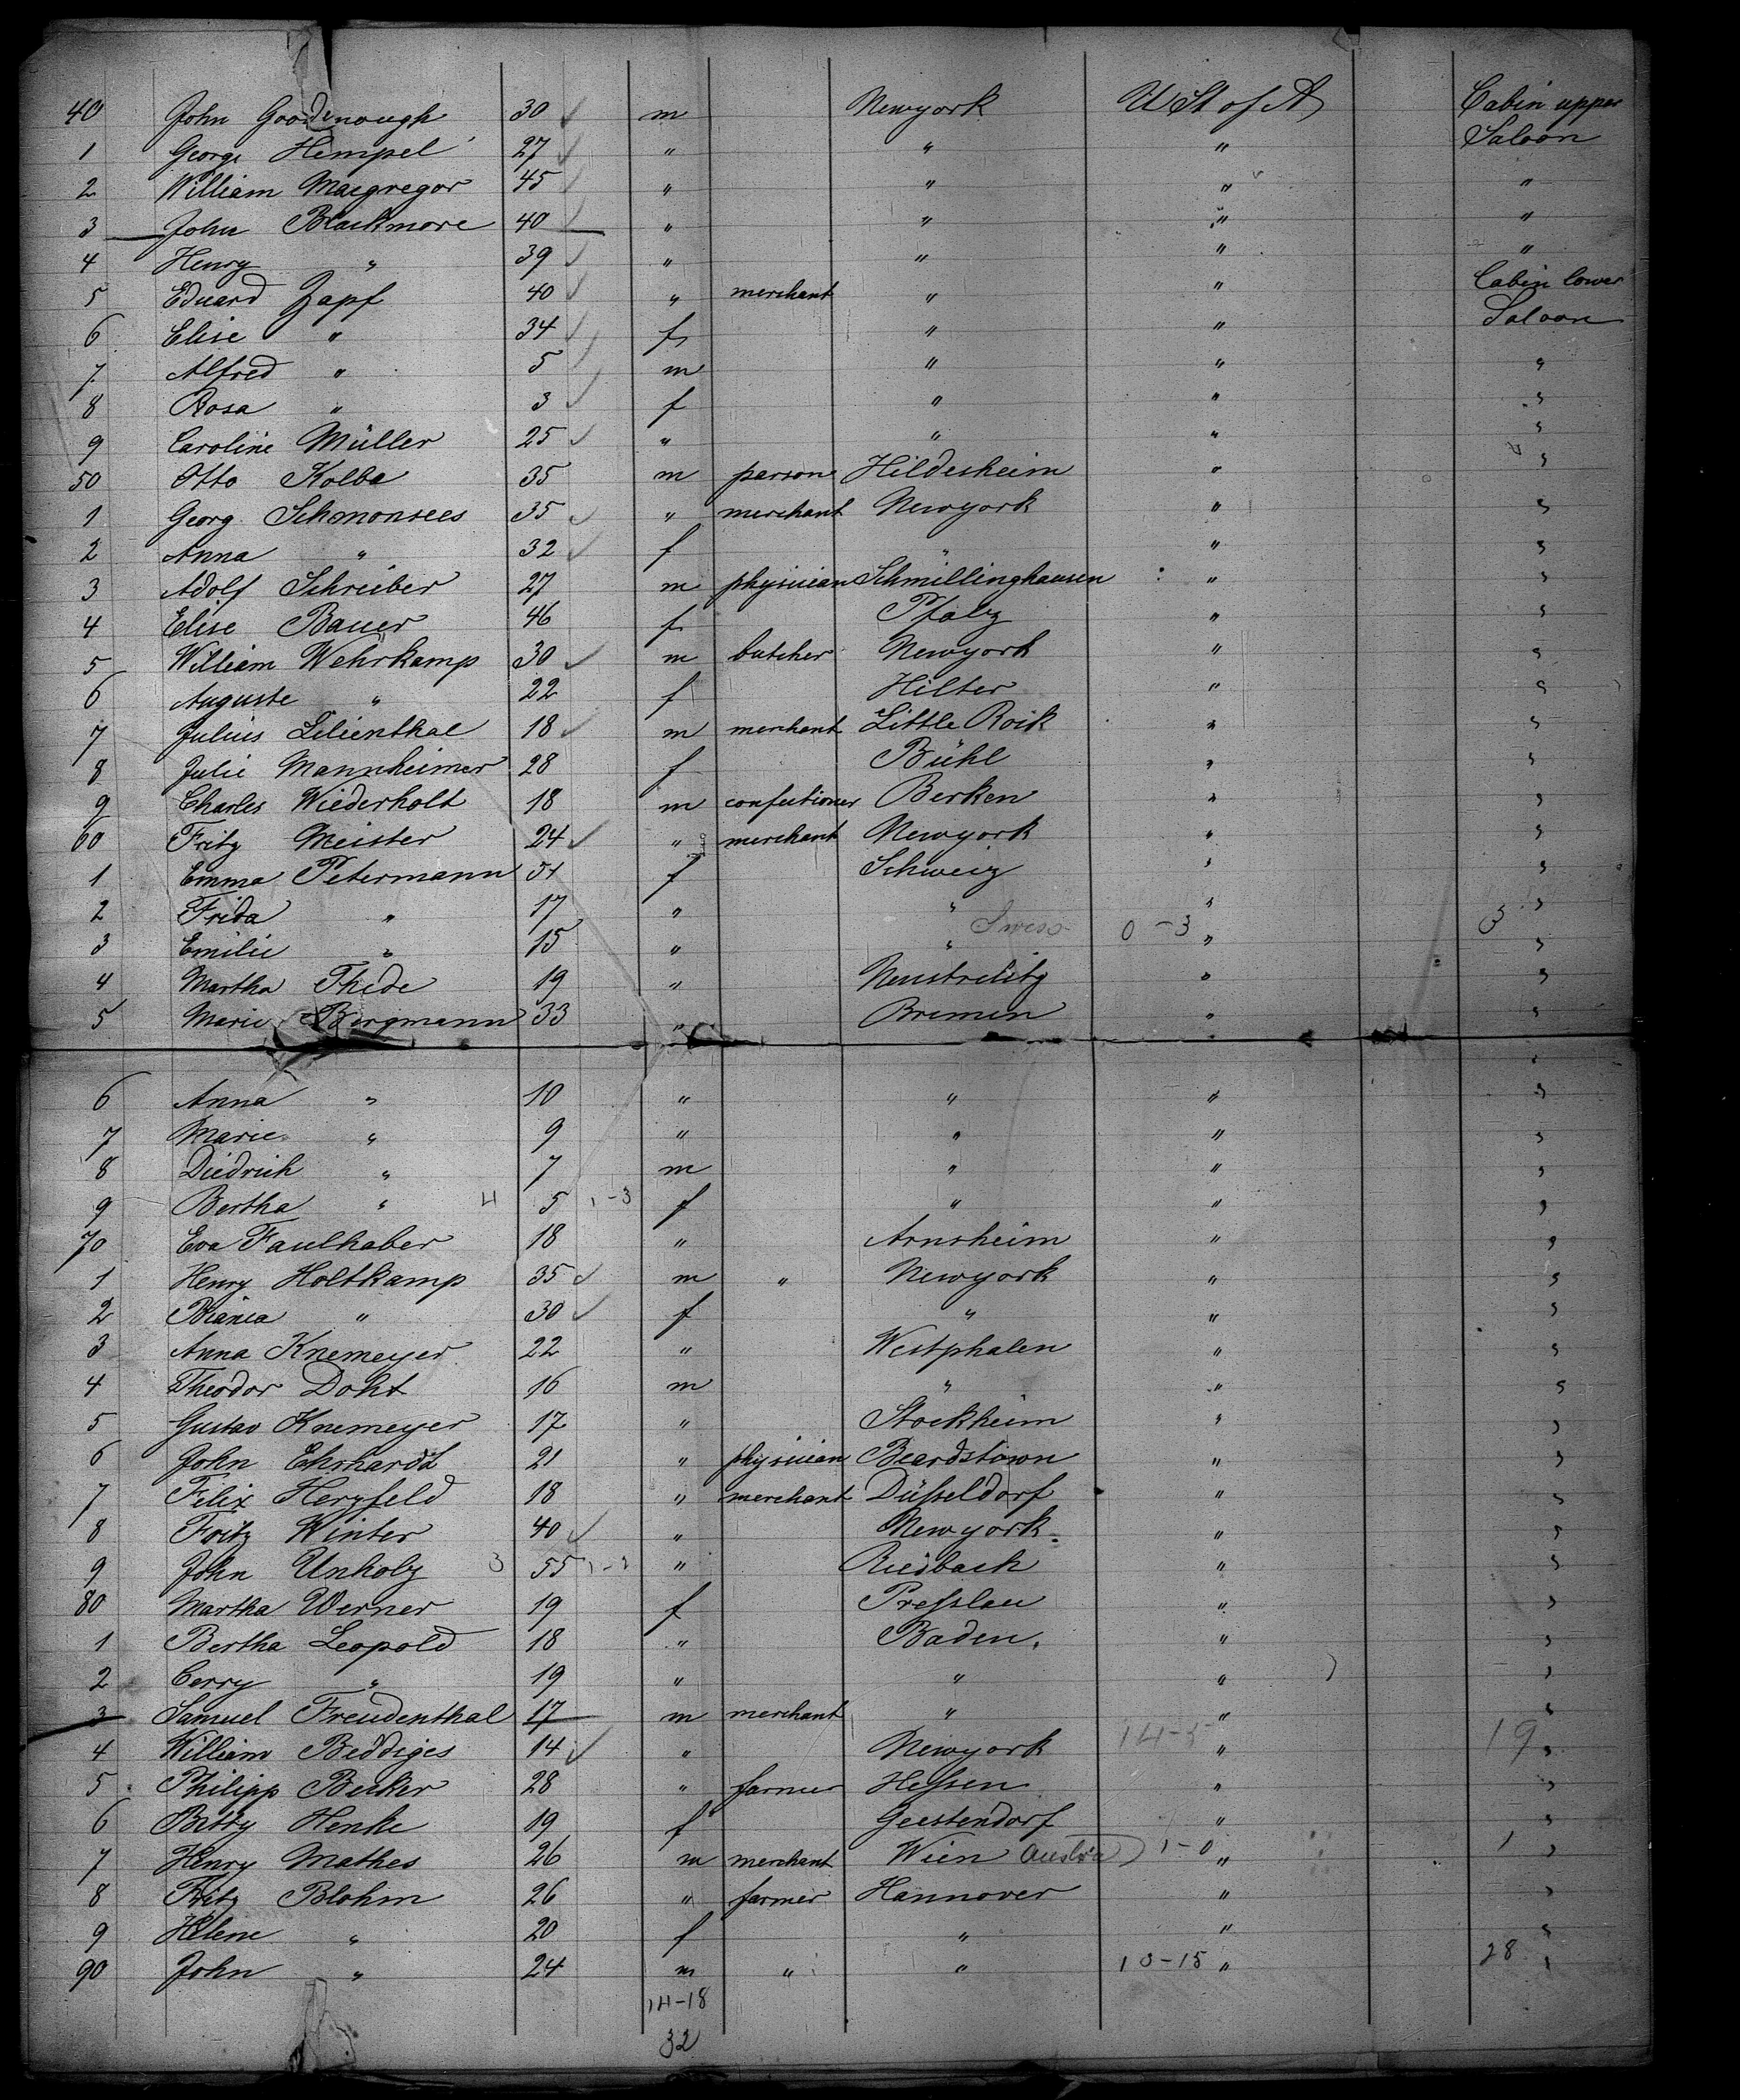 40 John Goodenough 30 m Newyork U St of A Cabin upper
1 George Hempel 27 " " " Saloon
2 William Macgregor 45 " " " "
3 John Blackmore 40 " " " "
4 Henry " 39 " " " "
5 Eduard Zapf 40 " merchant " " Cabin lower
6 Elise " 34 f " " Saloon
7 Alfred " 5 m " " "
8 Rosa " 3 f " " "
9 Caroline Müller 25 " " " "
50 Otto Kolbe 35 m parson Hildesheim " "
1 Georg Schmonsees 35 " merchant Newyork " "
2 Anna " 32 f " " "
3 Adolf Schreiber 27 m physician Schmillinghausen " "
4 Elise Bauer 46 f Pfalz " "
5 William Wehrkamp 30 m butcher Newyork " "
6 Auguste " 22 f Hilter " "
7 Julius Lilienthal 18 m merchant Little Rock " "
8 Julie Mannheimer 28 f Bühl " "
9 Charles Wiederholt 18 m confectioner Berken " "
60 Fritz Meister 24 " merchant Newyork " "
1 Emma Petermann f Schweiz " "
2 Frida " 17 " " " "
3 Emilie " 15 " " 0-3 " 3 "
4 Martha Thede 19 " Neustrelitz " "
5 Marie Bergmann 33 " Bremen " "
6 Anna " 10 " " " "
7 Marie " 9 " " " "
8 Diedrich " 7 m " " "
9 Bertha " 4 5 1-3 f " " "
70 Eva Faulhaber 18 " Arnsheim " "
1 Henry Holtkamp 35 m " Newyork " "
2 Bianca " 30 f " " "
3 Anna Knemeyer 22 " Westphalen " "
4 Theodor Doht 16 m " " "
5 Gustav Knemeyer 17 " Stockheim " "
6 John Ehrhardt 21 " physician Beardstown " "
7 Felix Herzfeld 18 " merchant Düsseldorf " "
8 Fritz Winter 40 " Newyork " "
9 John Unholz 3 55 " Riedbach " "
80 Martha Werner 19 f Presslau " "
1 Bertha Leopold 18 " Baden. " "
2 Cerry " 19 " " " "
3 Samuel Freudenthal 17 m merchant " " "
4 William Beddiges 14 " Newyork 14-5 " 19 "
5 Philipp Becker 28 " farmer Hessen " "
6 Betty Henke 19 f Geestendorf " "
7 Henry Mathes 26 m merchant Wien Austria 1-0 " 1 "
8 Fritz Blohm 26 " farmer Hannover " "
9 Helene " 20 f " " "
90 John " 24 m " " 13-15 " 28 "
14-18
32